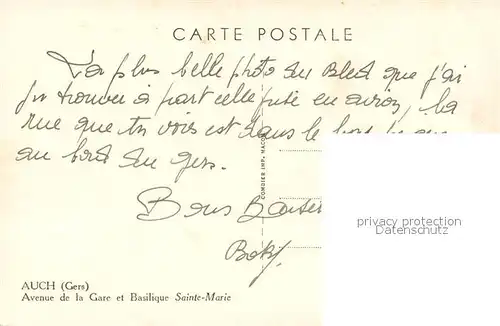 CARTE POSTALE
La plus belle photo du Bled que j'ai
pu trouver à part celle prise en avion, la
rue que tu vois est dans le
au bord du gers.
Bons Baisers
COMBIER IMP. MACON
privacy protection
AUCH (Gers)
Avenue de la Gare et Basilique Sainte-Marie